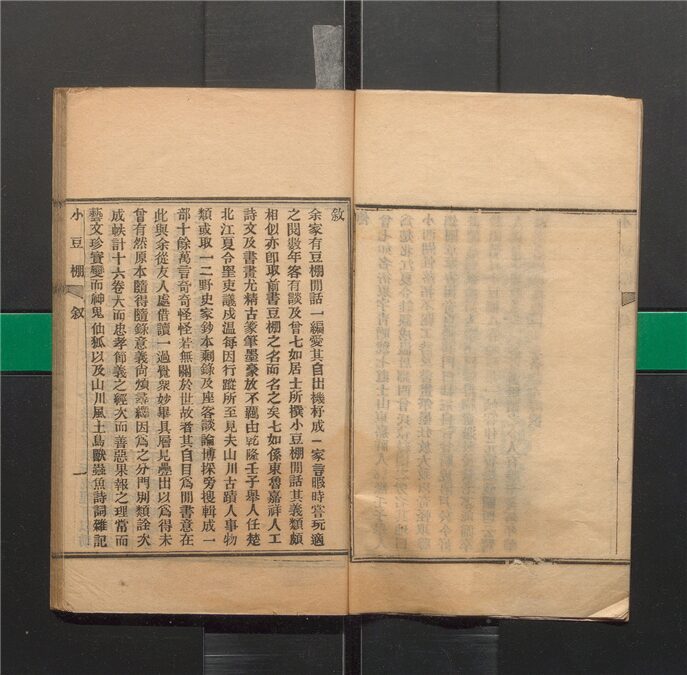 敘
余家有豆棚閒話一編愛其自出機杼成一家言暇時嘗玩適
之閱數年客有談及曾七如居士所撰小豆棚閒話其義類頗
相似亦卽取前書豆棚之名而名之矣七如係東魯嘉祥人工
詩文及書畫尤精古篆筆墨豪放不羈由乾隆壬子舉人任楚
北江夏令罣吏議戍温每因行蹤所至見夫山川古蹟人事物
類或取一二野史家鈔本剩錄及座客談論博採旁搜輯成一
部十餘萬言奇奇怪怪若無關於世故者其自目爲閒書意在
此與余從友人處借讀一過覺衆妙畢具層見疊出以爲得未
曾有然原本隨得隨錄意義尚煩尋繹因爲之分門別類詮次
成帙計十六卷大而忠孝節義之經次而善惡果報之理常而
藝文珍寶變而神鬼仙狐以及山川風土鳥獸蟲魚詩詞雜記
小豆棚 敘